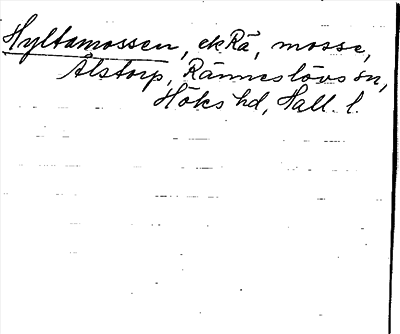 Hyltamossen, ekRä, mosse,
Alstorp, Ränneslövs sn,
Höks hd, Hall. l.